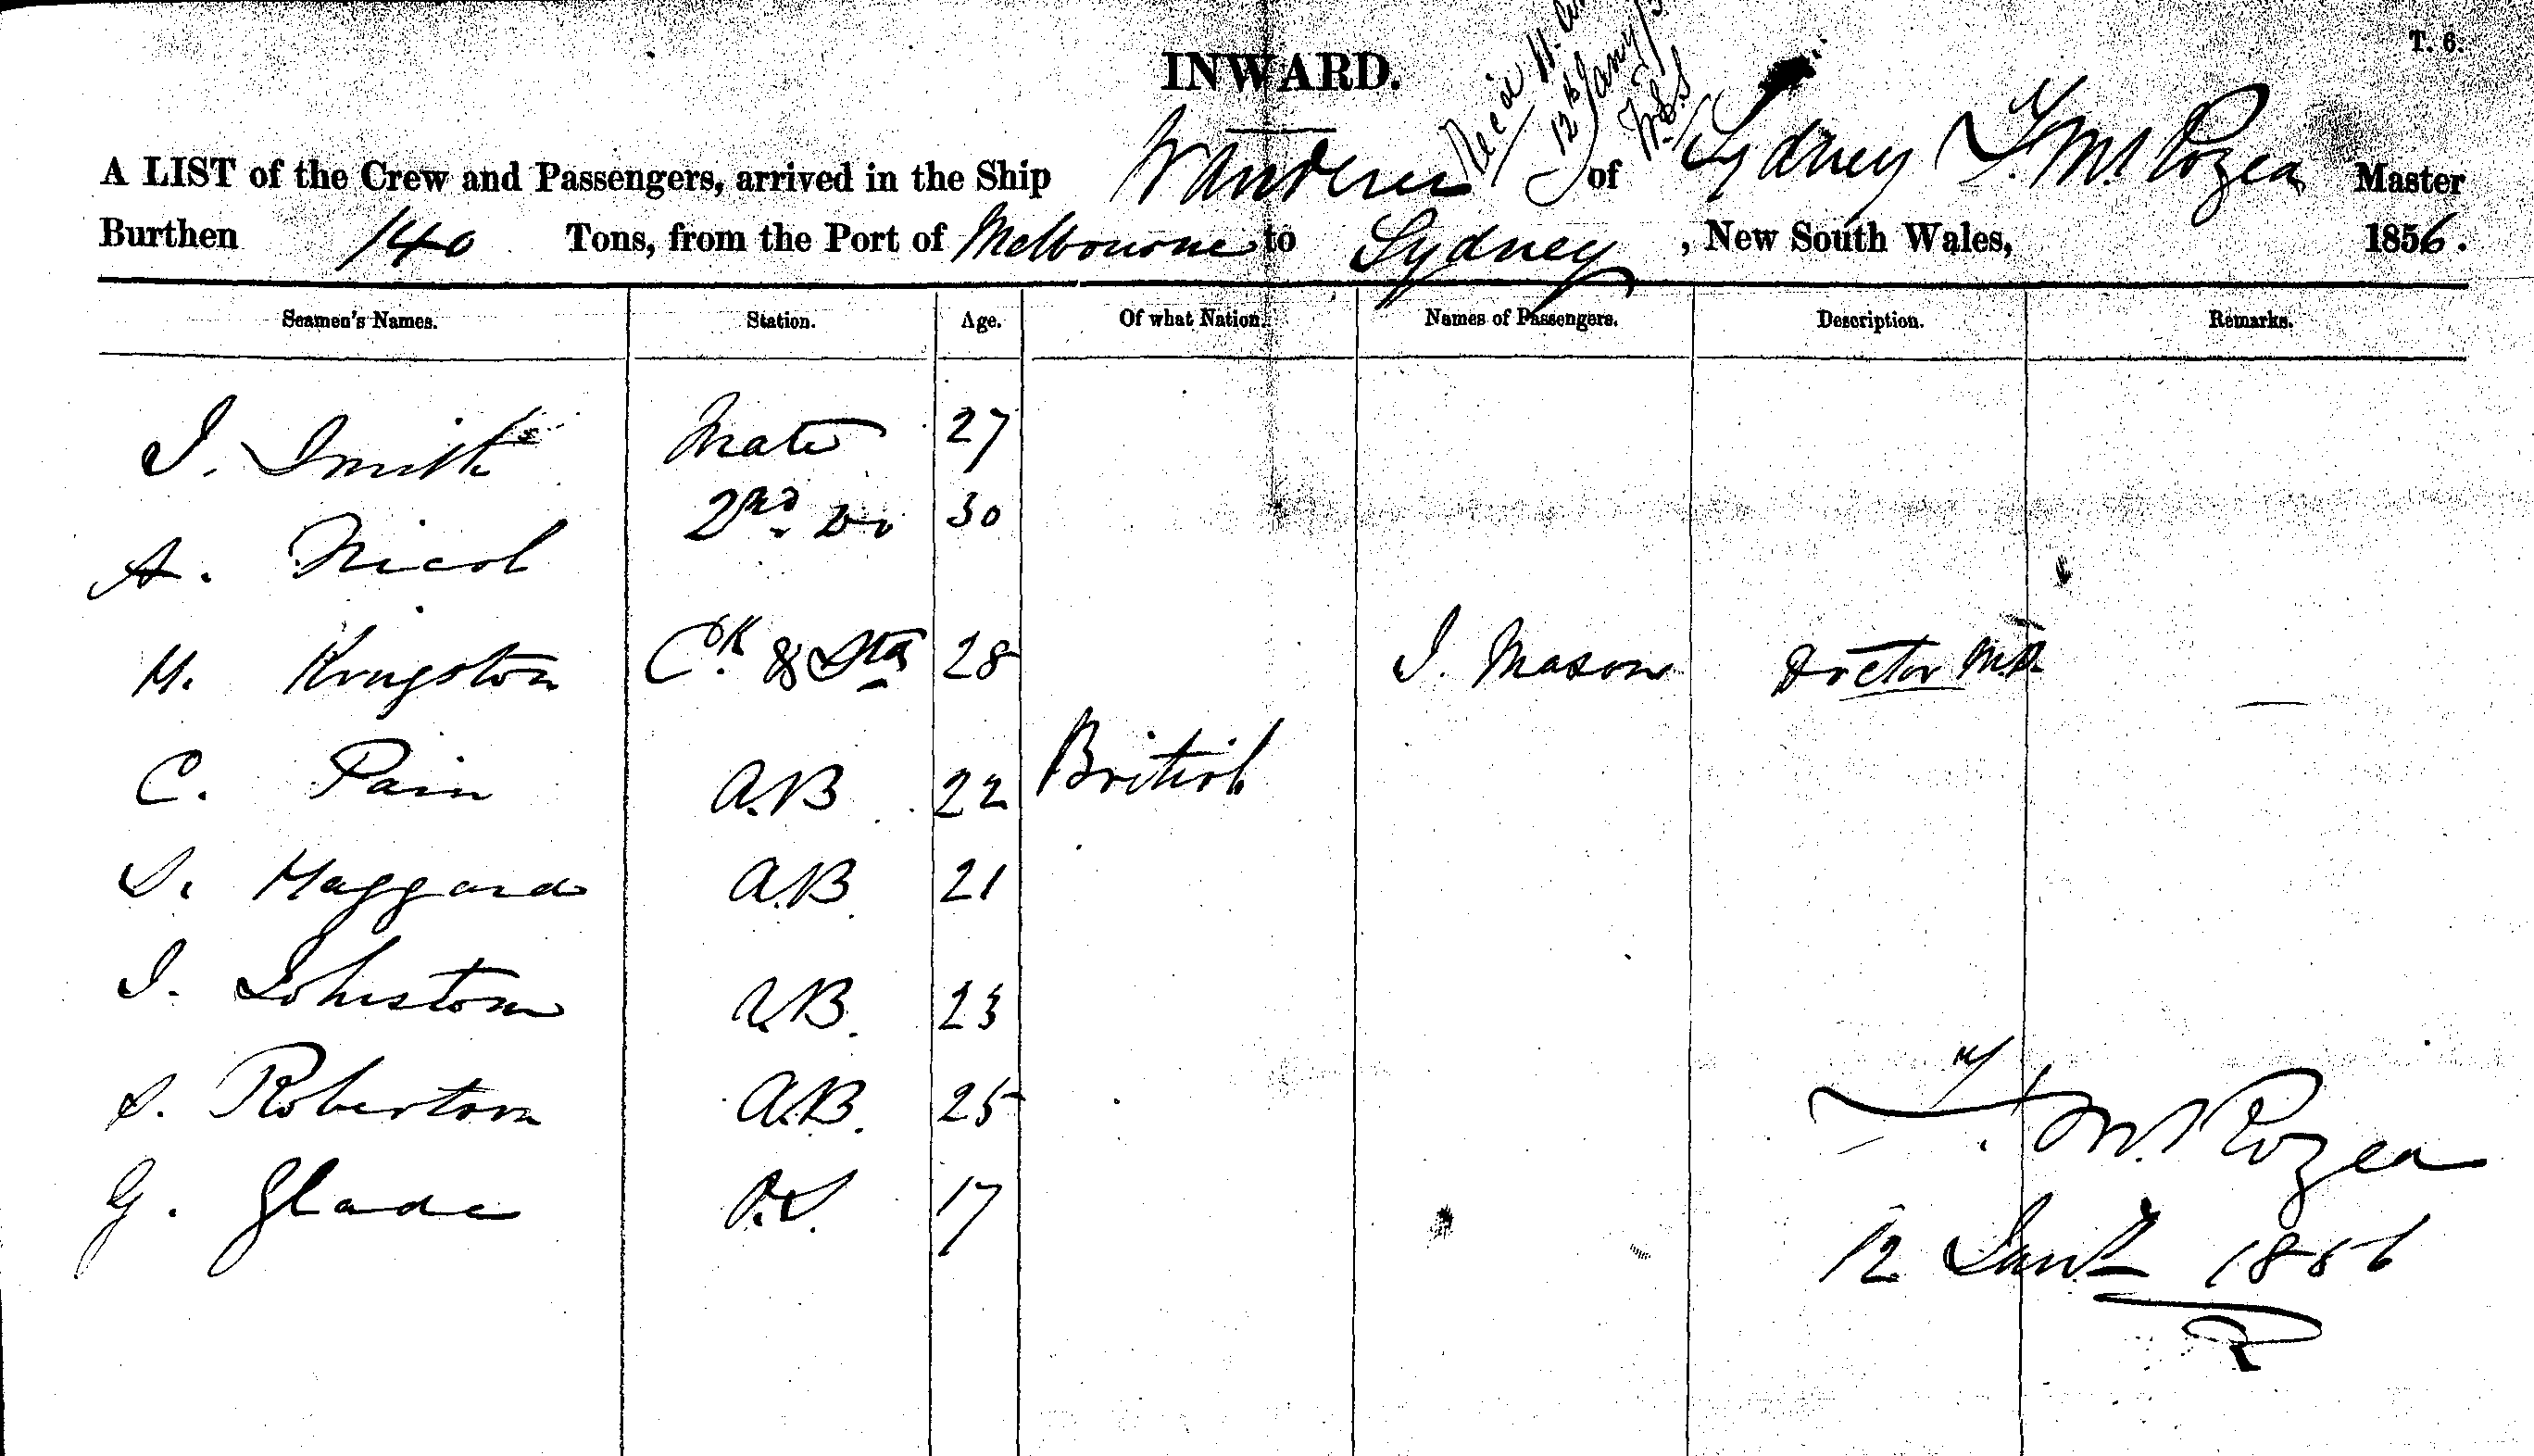 T. 6.
INWARD.
12th Jany
A LIST of the Crew and Passengers, arrived in the Ship Wanderer of Sydney Rozea Master
Burthen 140 Tons, from the Port of Melbourne to Sydney, New South Wales, 1856.
Seamen's Names. Station. Age. Of what Nation. Names of Passengers. Description. Remarks.
J. Smith Mate 27
A. Nicol 2nd Do 30
H. Kingston Ck & Std 28 J. Mason Doctor M.D. —
C. Pain A.B 22 British
S. Haggard A.B 21
J. Johnstom A.B. 23
S. Robertson A.B. 25
G. Glade O.S. 17
Rozea
12 Jany 1856